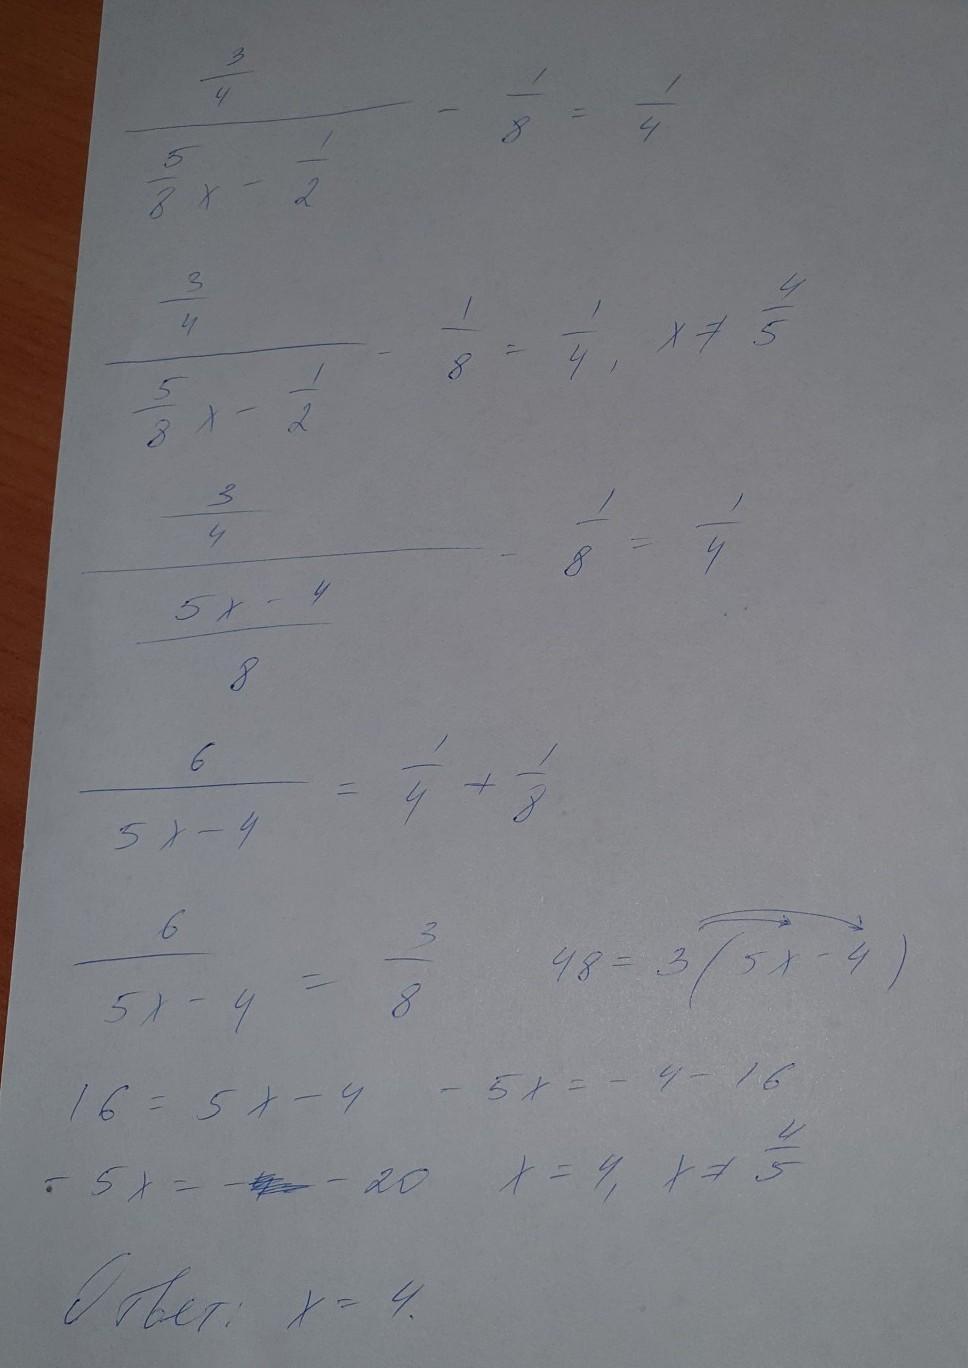 \frac{\frac{3}{4}}{\frac{5}{8}x - \frac{1}{2}} - \frac{1}{8} = \frac{1}{4}
\frac{\frac{3}{4}}{\frac{5}{8}x - \frac{1}{2}} - \frac{1}{8} = \frac{1}{4}, x ≠ \frac{4}{5}
\frac{\frac{3}{4}}{\frac{5x - 4}{8}} - \frac{1}{8} = \frac{1}{4}
\frac{6}{5x - 4} = \frac{1}{4} + \frac{1}{8}
\frac{6}{5x - 4} = \frac{3}{8} 48 = 3(5x - 4)
16 = 5x - 4 -5x = -4 - 16
-5x = - -20 x = 4, x ≠ \frac{4}{5}
Ответ: x = 4.